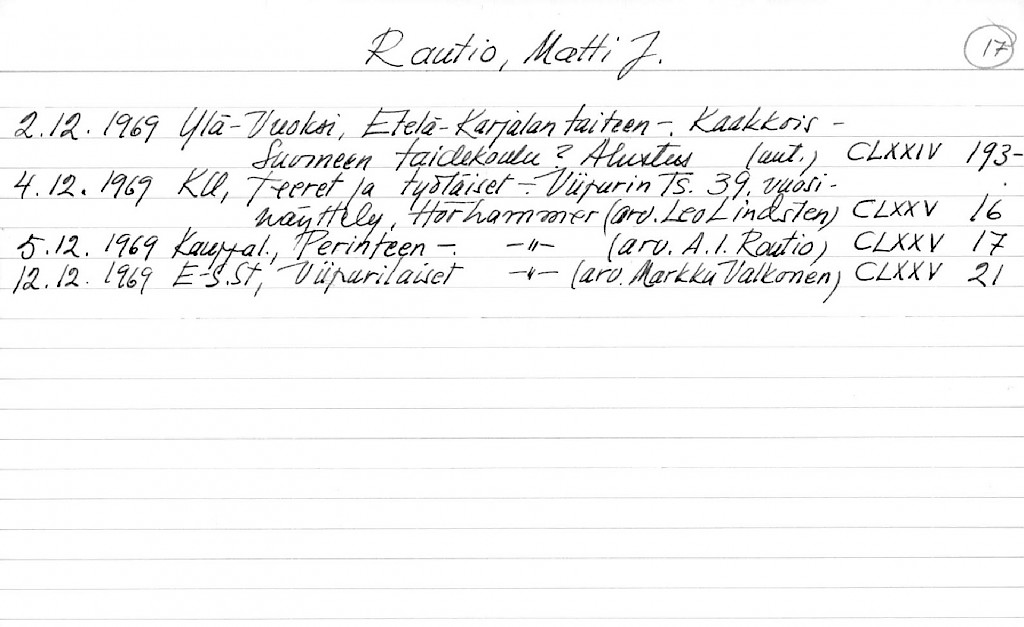 Rautio, Matti J.
17
2.12.1969 Ylä-Vuoksi, Etelä-Karjalan taiteen -. Kaakkois-
Suomeen taidekoulu? Alustus (aut.) CLXXIV 193-
4.12.1969 KU, Teeret ja työläiset -. Viipurin Ts. 39. vuosi-
näyttely, Hörhammer (arv. Leo Lindsten) CLXXV 16
5.12.1969 Kauppal., Perinteen -. -"- (arv. A.I. Routio) CLXXV 17
12.12.1969 E-S.St, Viipurilaiset -"- (arv. Markku Valkonen) CLXXV 21